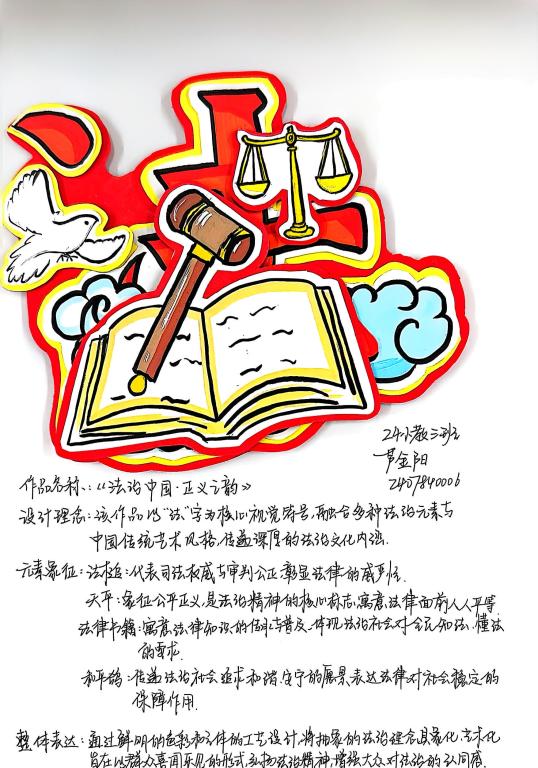 法
24小教三班
芦金阳
2407840006
作品名称:《法治中国·正义之韵》
设计理念:该作品以“法”字为核心视觉符号,融合多种法治元素与
中国传统艺术风格,传递深厚的法治文化内涵.
元素象征:法槌:代表司法权威与审判公正,彰显法律的威严性.
天平:象征公平正义,是法治精神的核心标志,寓意法律面前人人平等.
法律书籍:寓意法律知识的传承与普及,体现法治社会对全民知法、懂法
的要求.
和平鸽:传递法治社会追求和谐、安宁的愿景,表达法律对社会稳定的
保障作用.
整体表达:通过鲜明的色彩和立体的工艺设计,将抽象的法治理念具象化、艺术化
旨在以群众喜闻乐见的形式,弘扬法治精神,增强大众对法治的认同感.